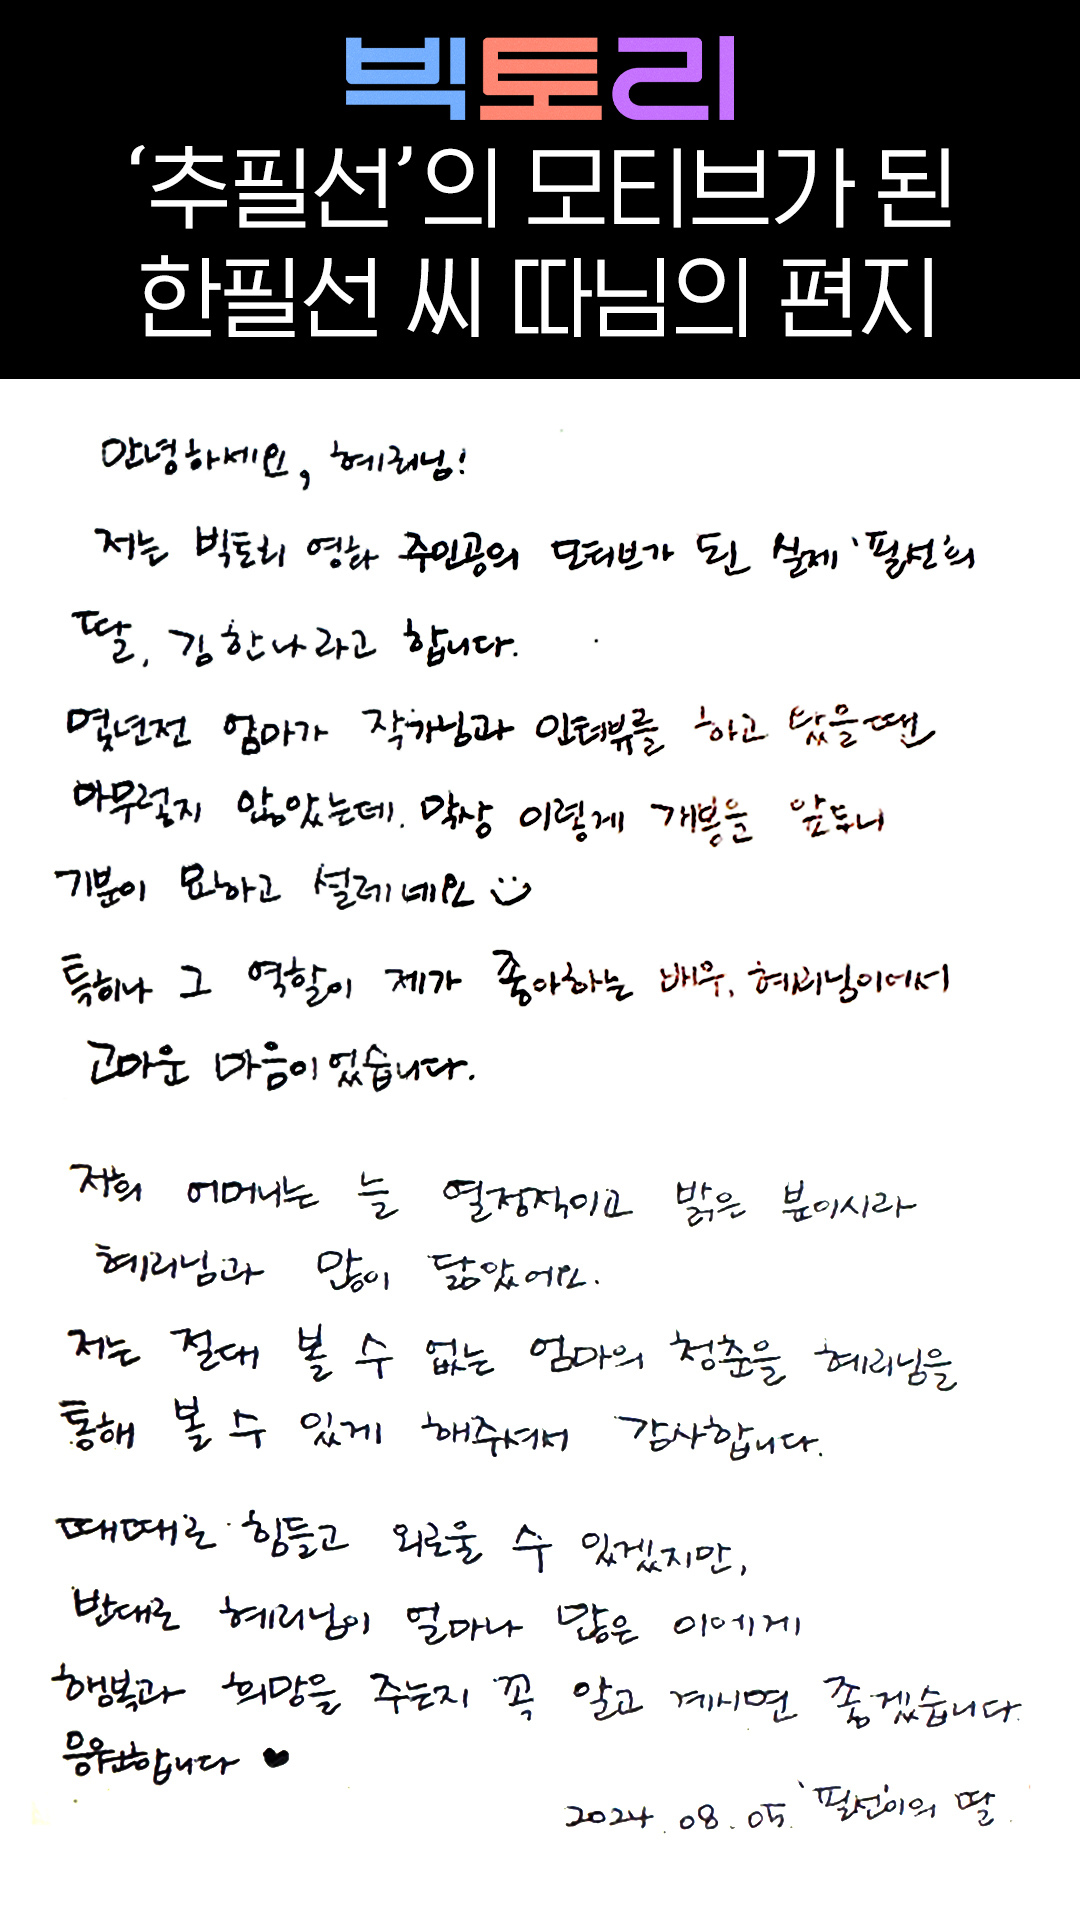 빅토리
‘추필선’의 모티브가 된
한필선 씨 따님의 편지
안녕하세요, 혜리님!
저는 빅토리 영화 주인공의 모티브가 된 실제 '필선'의
딸, 김한나라고 합니다.
몇년전 엄마가 작가님과 인터뷰를 하고 왔을땐
아무렇지 않았는데. 막상 이렇게 개봉을 앞두니
기분이 묘하고 설레네요
특히나 그 역할이 제가 좋아하는 배우, 혜리님이어서
고마운 마음이었습니다.
저희 어머니는 늘 열정적이고 밝은 분이시라
혜리님과 많이 닮았어요.
저는 절대 볼 수 없는 엄마의 청춘을 혜리님을
통해 볼 수 있게 해주셔서 감사합니다.
때때로 힘들고 외로울 수 있겠지만,
반대로 혜리님이 얼마나 많은 이에게
행복과 희망을 주는지 꼭 알고 계시면 좋겠습니다.
응원합니다 ♥
2024.08.05. '필선'이의 딸